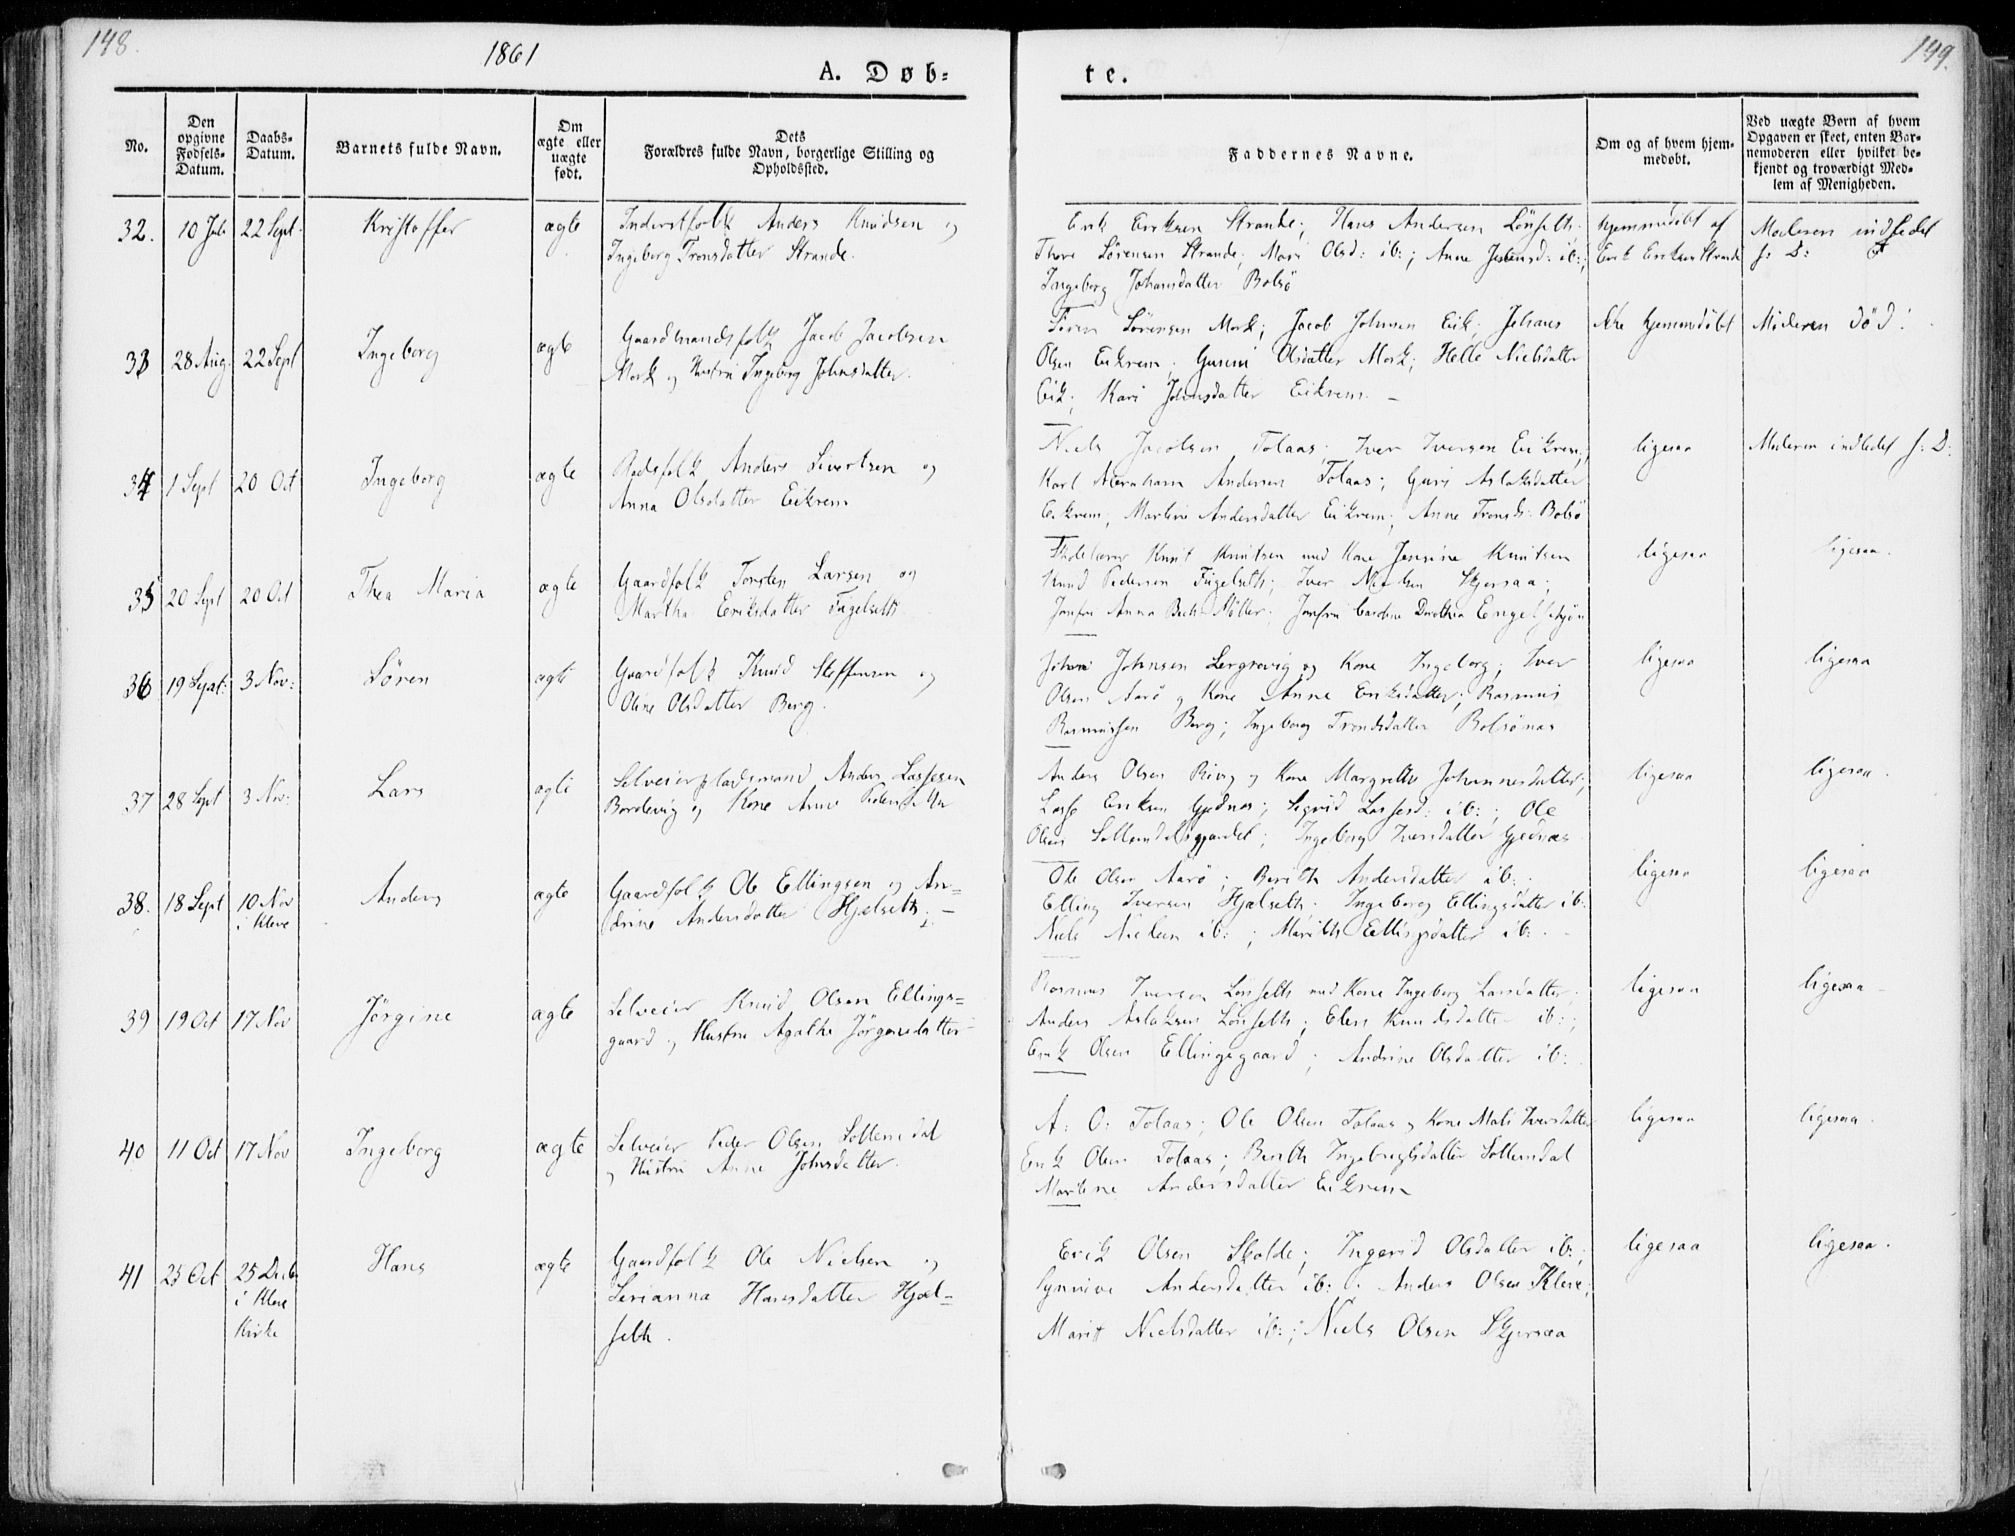 148.
1861
A. Døb-
te.
149.
No.
Den opgivne Fødsels-Datum.
Daabs-Datum.
Barnets fulde Navn.
Om ægte eller uægte født.
Dets Forældres fulde Navn, borgerlige Stilling og Opholdssted.
Faddernes Navne.
Om og af hvem hjem-medøbt.
Ved uægte Børn af hvem Opgaven er skeet, enten Bar-nemoderen eller hvilket be-kjendt og troværdigt Med-lem af Menigheden.
32. 10 Juli 22 Sept. Kristoffer ægte Inderstfolk Anders Knudsen og
Ingeborg Tronsdatter Strande.
Erik Eriksen Strande; Hans Andersen Lønseth;
Thore Sørensen Strande; Mari Olsd: ib:; Anne Jensd: ib:;
Ingeborg Johansdatter Bolsø
hjemmedøbt af
Erik Eriksen Strande
Moderen indledet
s: D:
33 28 Aug. 22 Sept Ingeborg ægte Gaardmandsfolk Jacob Jacobsen
Mork og Hustru Ingeborg Johnsdatter.
Søren Sørensen Mork; Jacob Johnsen Eik; Johans
Olsen Eikrem; Gunni Olsdatter Mork; Helle Nielsdatter
Eik; Kari Johnsdatter Eikrem. –
ikke hjemmedøbt
Moderen død!
34 1 Sept 20 Oct Ingeborg ægte Anders Sivertsen og
Anna Olsdatter Eikrem
Niels Jacobsen Tolaas; Iver Iversen Eikrem;
Karl Abraham Andersen Tolaas; Guri Aslaksdatter
Eikrem; Martine Andersdatter Eikrem; Anne Tronsd: Bolsø
ligesaa
Moderen indledet s: D:
35 20 Sept 20 Oct Thea Maria ægte Gaardfolk Torsten Larsen og
Martha Eriksdatter Fugelseth
Skolelærer Knut Knutsen med Kone Jensine Knutsen
Knud Pedersen Fugelseth; Iver Nielsen Skjorsaa;
Jomfru Anna Bech Møller; Jomfru Caroline Dorothea Engelskjøn
ligesaa
ligesaa.
36 19 Sept: 3 Nov: Søren ægte Gaardfolk Knud Steffensen og
Oline Olsdatter Berg.
Johan Johnsen Lergrovig og Kone Ingeborg; Iver
Olsen Aarø og Kone Anne Eriksdatter; Rasmus
Rasmussen Berg; Ingeborg Trondsdatter Bolsønes
ligesaa
ligesaa
37 28 Sept 3 Nov: Lars ægte Selveierpladsmand Anders Lassesen
Bordevig og Kone Anne Pedersdatter
Anders Olsen Berg og Kone Margrethe Johannesdatter;
Lasse Eriksen Gjednes; Sigrid Lassesd: ib:; Ole
Olsen; Ingeborg Iversdatter Gjednes
ligesaa
ligesaa.
38. 18 Sept 10 Nov
i Kleve
Anders ægte Gaardfolk Ole Ellingsen og An-
drine Andersdatter Hjelseth. –
Ole Olsen Aarø; Berith Andersdatter ib:.
Elling Iversen Hjelseth. Ingeborg Ellingsdatter ib:
Niels Nielsen ib:; Marith Ellingsdatter ib:.
ligesaa
ligesaa
39 19 Oct 17 Nov Jørgine ægte Selveier Knud Olsen Ellings-
gaard og Hustru Agathe Jørgensdatter
Rasmus Iversen Lønseth med Kone Ingeborg Larsdatter;
Anders Aslaksen Lønseth; Elen Knudsdatter ib:.
Erik Olsen Ellingsgaard; Andrine Olsdatter ib:.
ligesaa
ligesaa
40 11 Oct 17 Nov Ingeborg ægte Selveier Peder Olsen Sollemdal
og Hustru Anne Johnsdatter.
A: O: Tolaas; Ole Olsen Tolaas og Kone Mali Iversdatter
Erik Olsen Tolaas; Berith Ingebrigtsdatter Sollemdal
Martine Andersdatter Eikrem
ligesaa
ligesaa.
41 23 Oct 25 Decb
i Kleve
Kirke
Hans ægte Gaardfolk Ole Nielsen og
Serianna Hansdatter Hjel-
seth.
Erik Olsen Skolde; Ingerid Olsdatter ib:.
Synnive Andersdatter ib:; Anders Olsen Kleve;
Marit Nielsdatter ib:; Niels Olsen Skjorsaa
ligesaa
ligesaa.